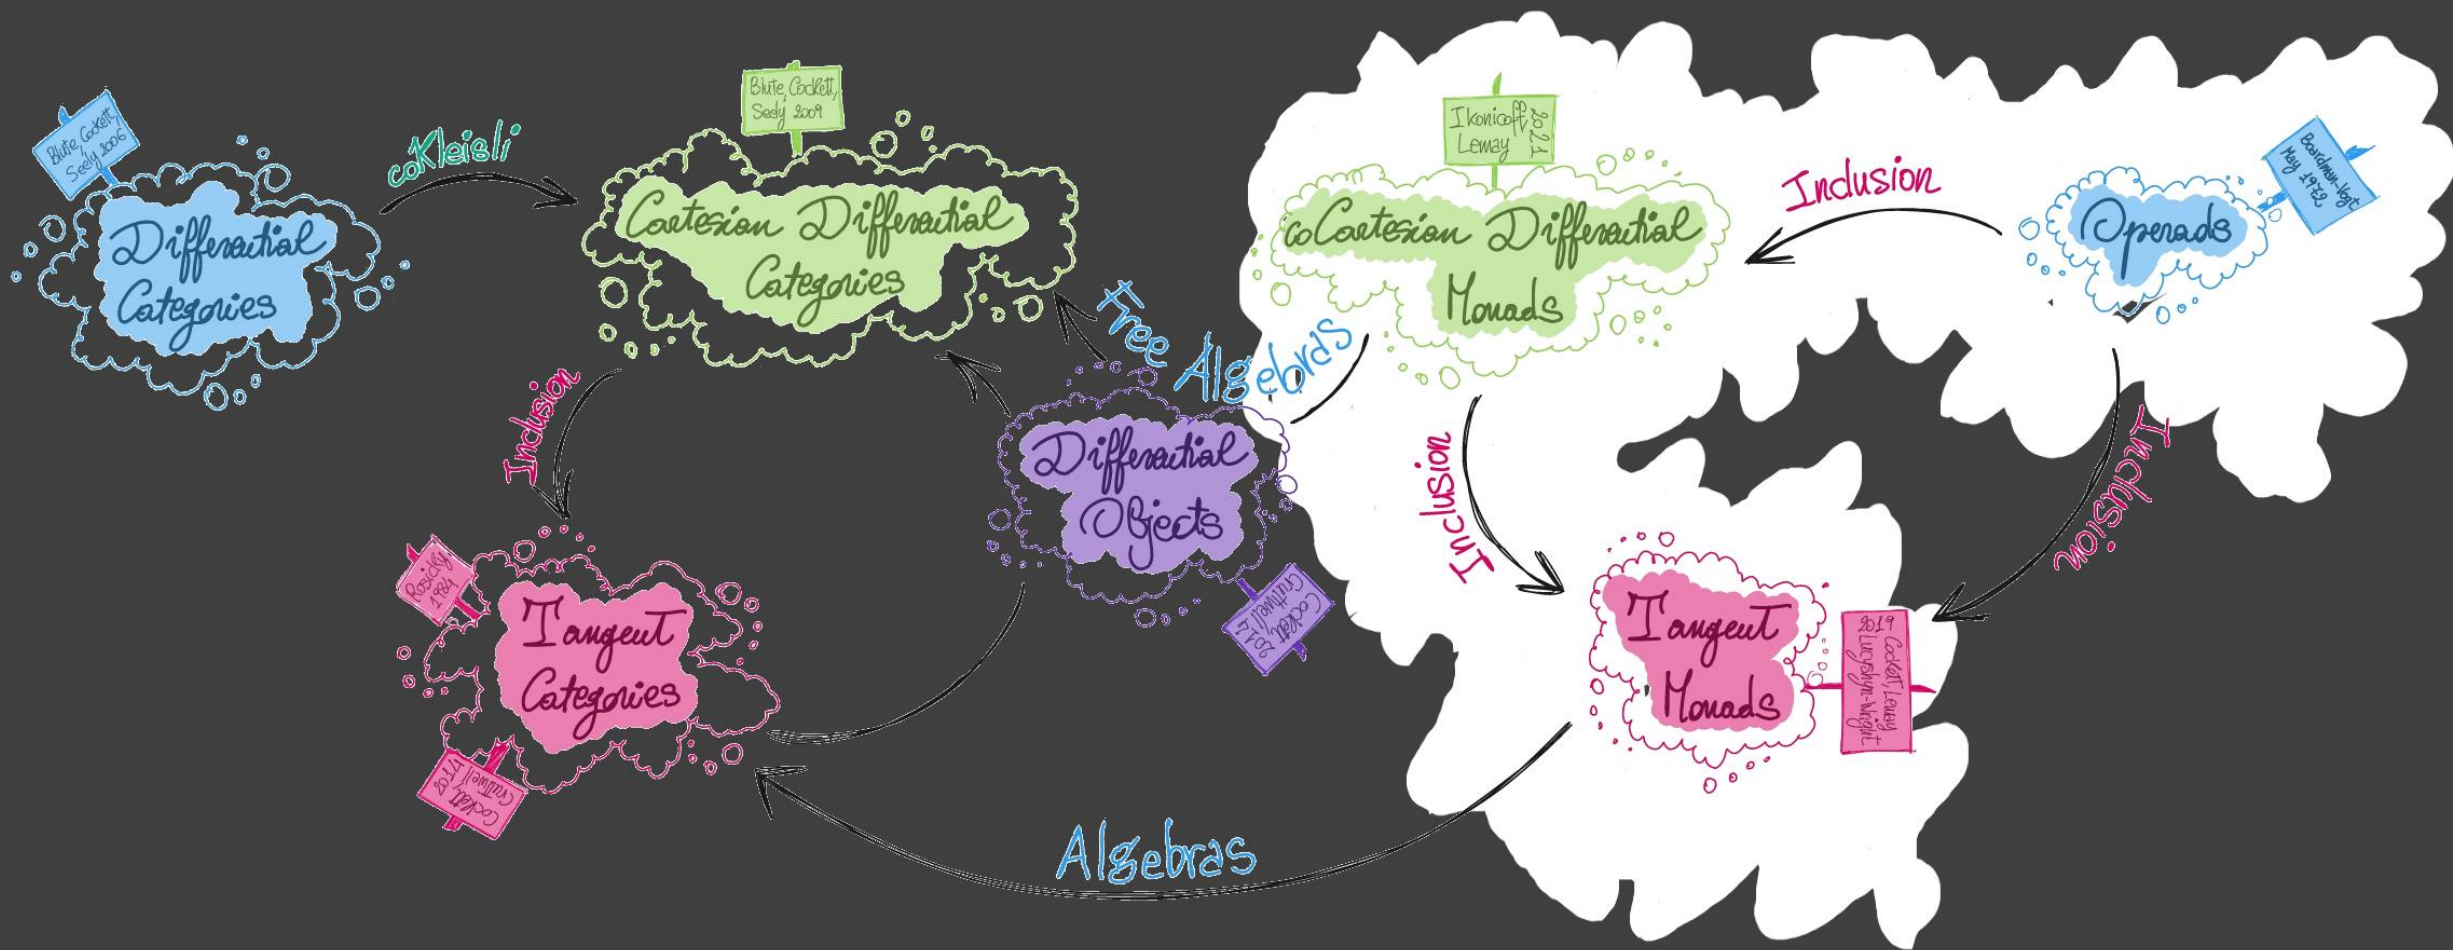 Blute, Cockett,
Seely 2006
Differential
Categories
coKleisli
Blute, Cockett,
Seely 2009
Cartesian Differential
Categories
Inclusion
Rosický
1984
Tangent
Categories
Cockett,
Cruttwell
2014
Free Algebras
Differential
Objects
Cockett
Cruttwell
2014
Ikonicoff,
Lemay
2021
coCartesian Differential
Monads
Inclusion
Operads
Boardman-Vogt
May 1972
Inclusion
Inclusion
Tangent
Monads
2019 Cockett, Lemay
Lucyshyn-Wright
Algebras